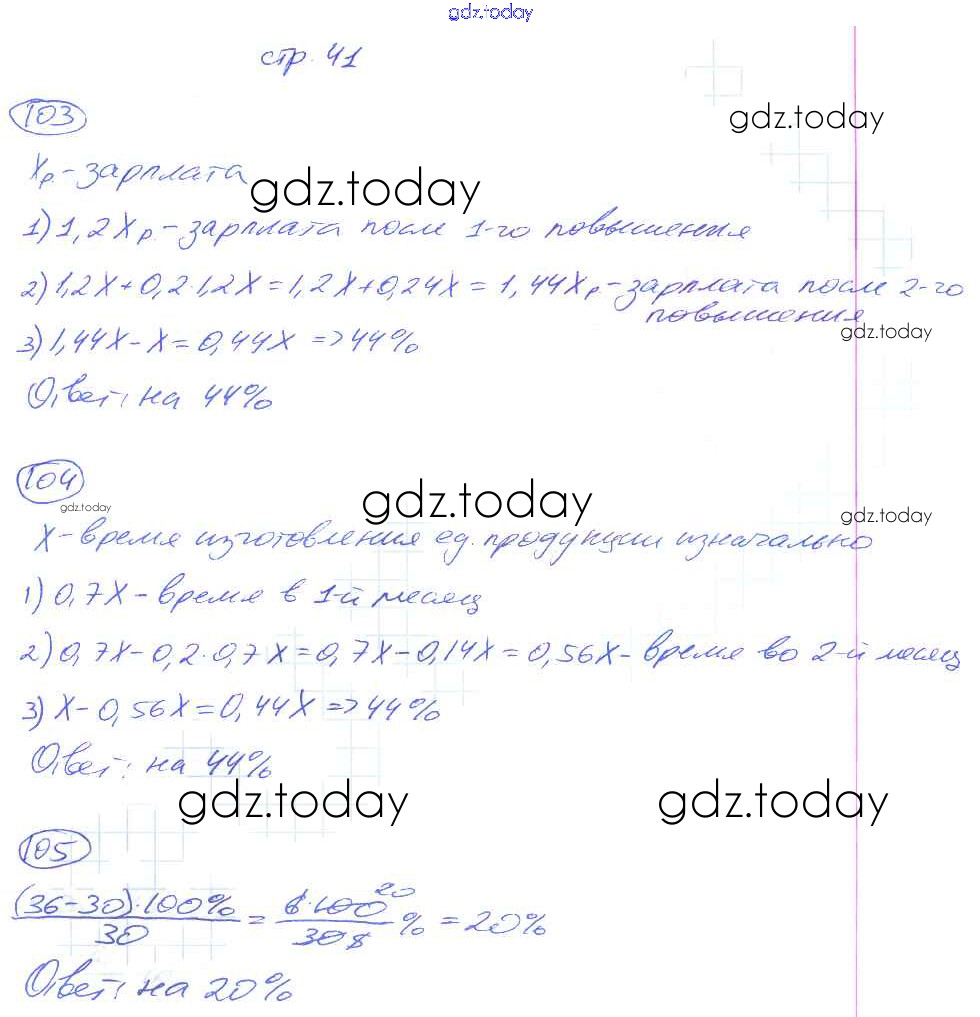 gdz.today
стр. 41
103
gdz.today
Xр.-зарплата
gdz.today
1) 1,2Xр.-зарплата после 1-го повышения
2) 1,2X+0,2·1,2X=1,2X+0,24X=1,44Xр-зарплата после 2-го
повышения
gdz.today
3) 1,44X-X=0,44X =>44%
Ответ: на 44%
104
gdz.today
gdz.today
gdz.today
X-время изготовления ед. продукции изначально
1) 0,7X-время в 1-й месяц
2) 0,7X-0,2·0,7X=0,7X-0,14X=0,56X-время во 2-й месяц
3) X-0,56X=0,44X=>44%
Ответ: на 44%
gdz.today
gdz.today
105
(36-30)·100%/30 = 6·100 20/30 5 % = 20%
Ответ: на 20%